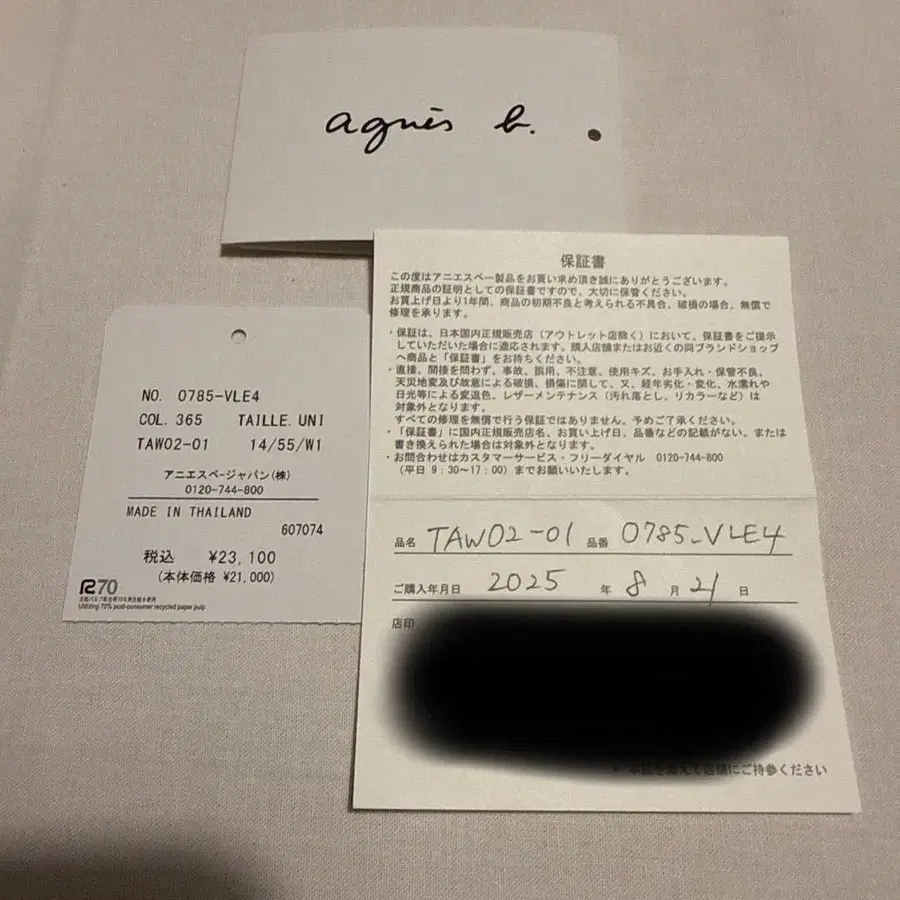 agnès b.
保証書
この度はアニエスベー製品をお買い求め頂き誠にありがとうございます。
正規商品の証明としての保証書ですので、大切に保管ください。
お買上げ日より1年間、商品の初期不良と考えられる不具合、破損の場合、無償で
修理を承ります。
・保証は、日本国内正規販売店（アウトレット店除く）において、保証書をご提示
していただいた場合に適応されます。購入店舗またはお近くの同ブランドショップ
へ商品と「保証書」をお持ちください。
・直接、間接を問わず、事故、誤用、不注意、使用キズ、お手入れ・保管不良、
天災地変及び故意による破損、損傷に関して、又、経年劣化・変化、水濡れや
日光等による変退色、レザーメンテナンス（汚れ落とし、リカラーなど）は
対象外となります。
すべての修理を無償で行う保証ではありません。予めご了承ください。
・「保証書」に国内正規販売店名、お買い上げ日、品番などの記載がない、または
書き換えられた場合は対象外となります。
・お問合わせはカスタマーサービス・フリーダイヤル 0120-744-800
（平日 9:30〜17:00）までお願いいたします。
品名 TAW02-01 品番 0785-VLE4
ご購入年月日 2025 年 8 月 21 日
店印
店舗にご持参ください
NO. 0785-VLE4
COL. 365 TAILLE. UNI
TAW02-01 14/55/W1
アニエスベージャパン(株)
0120-744-800
MADE IN THAILAND
607074
税込 ¥23,100
(本体価格 ¥21,000)
R70
古紙パルプ配合率70%再生紙を使用
Utilizing 70% post-consumer recycled paper pulp